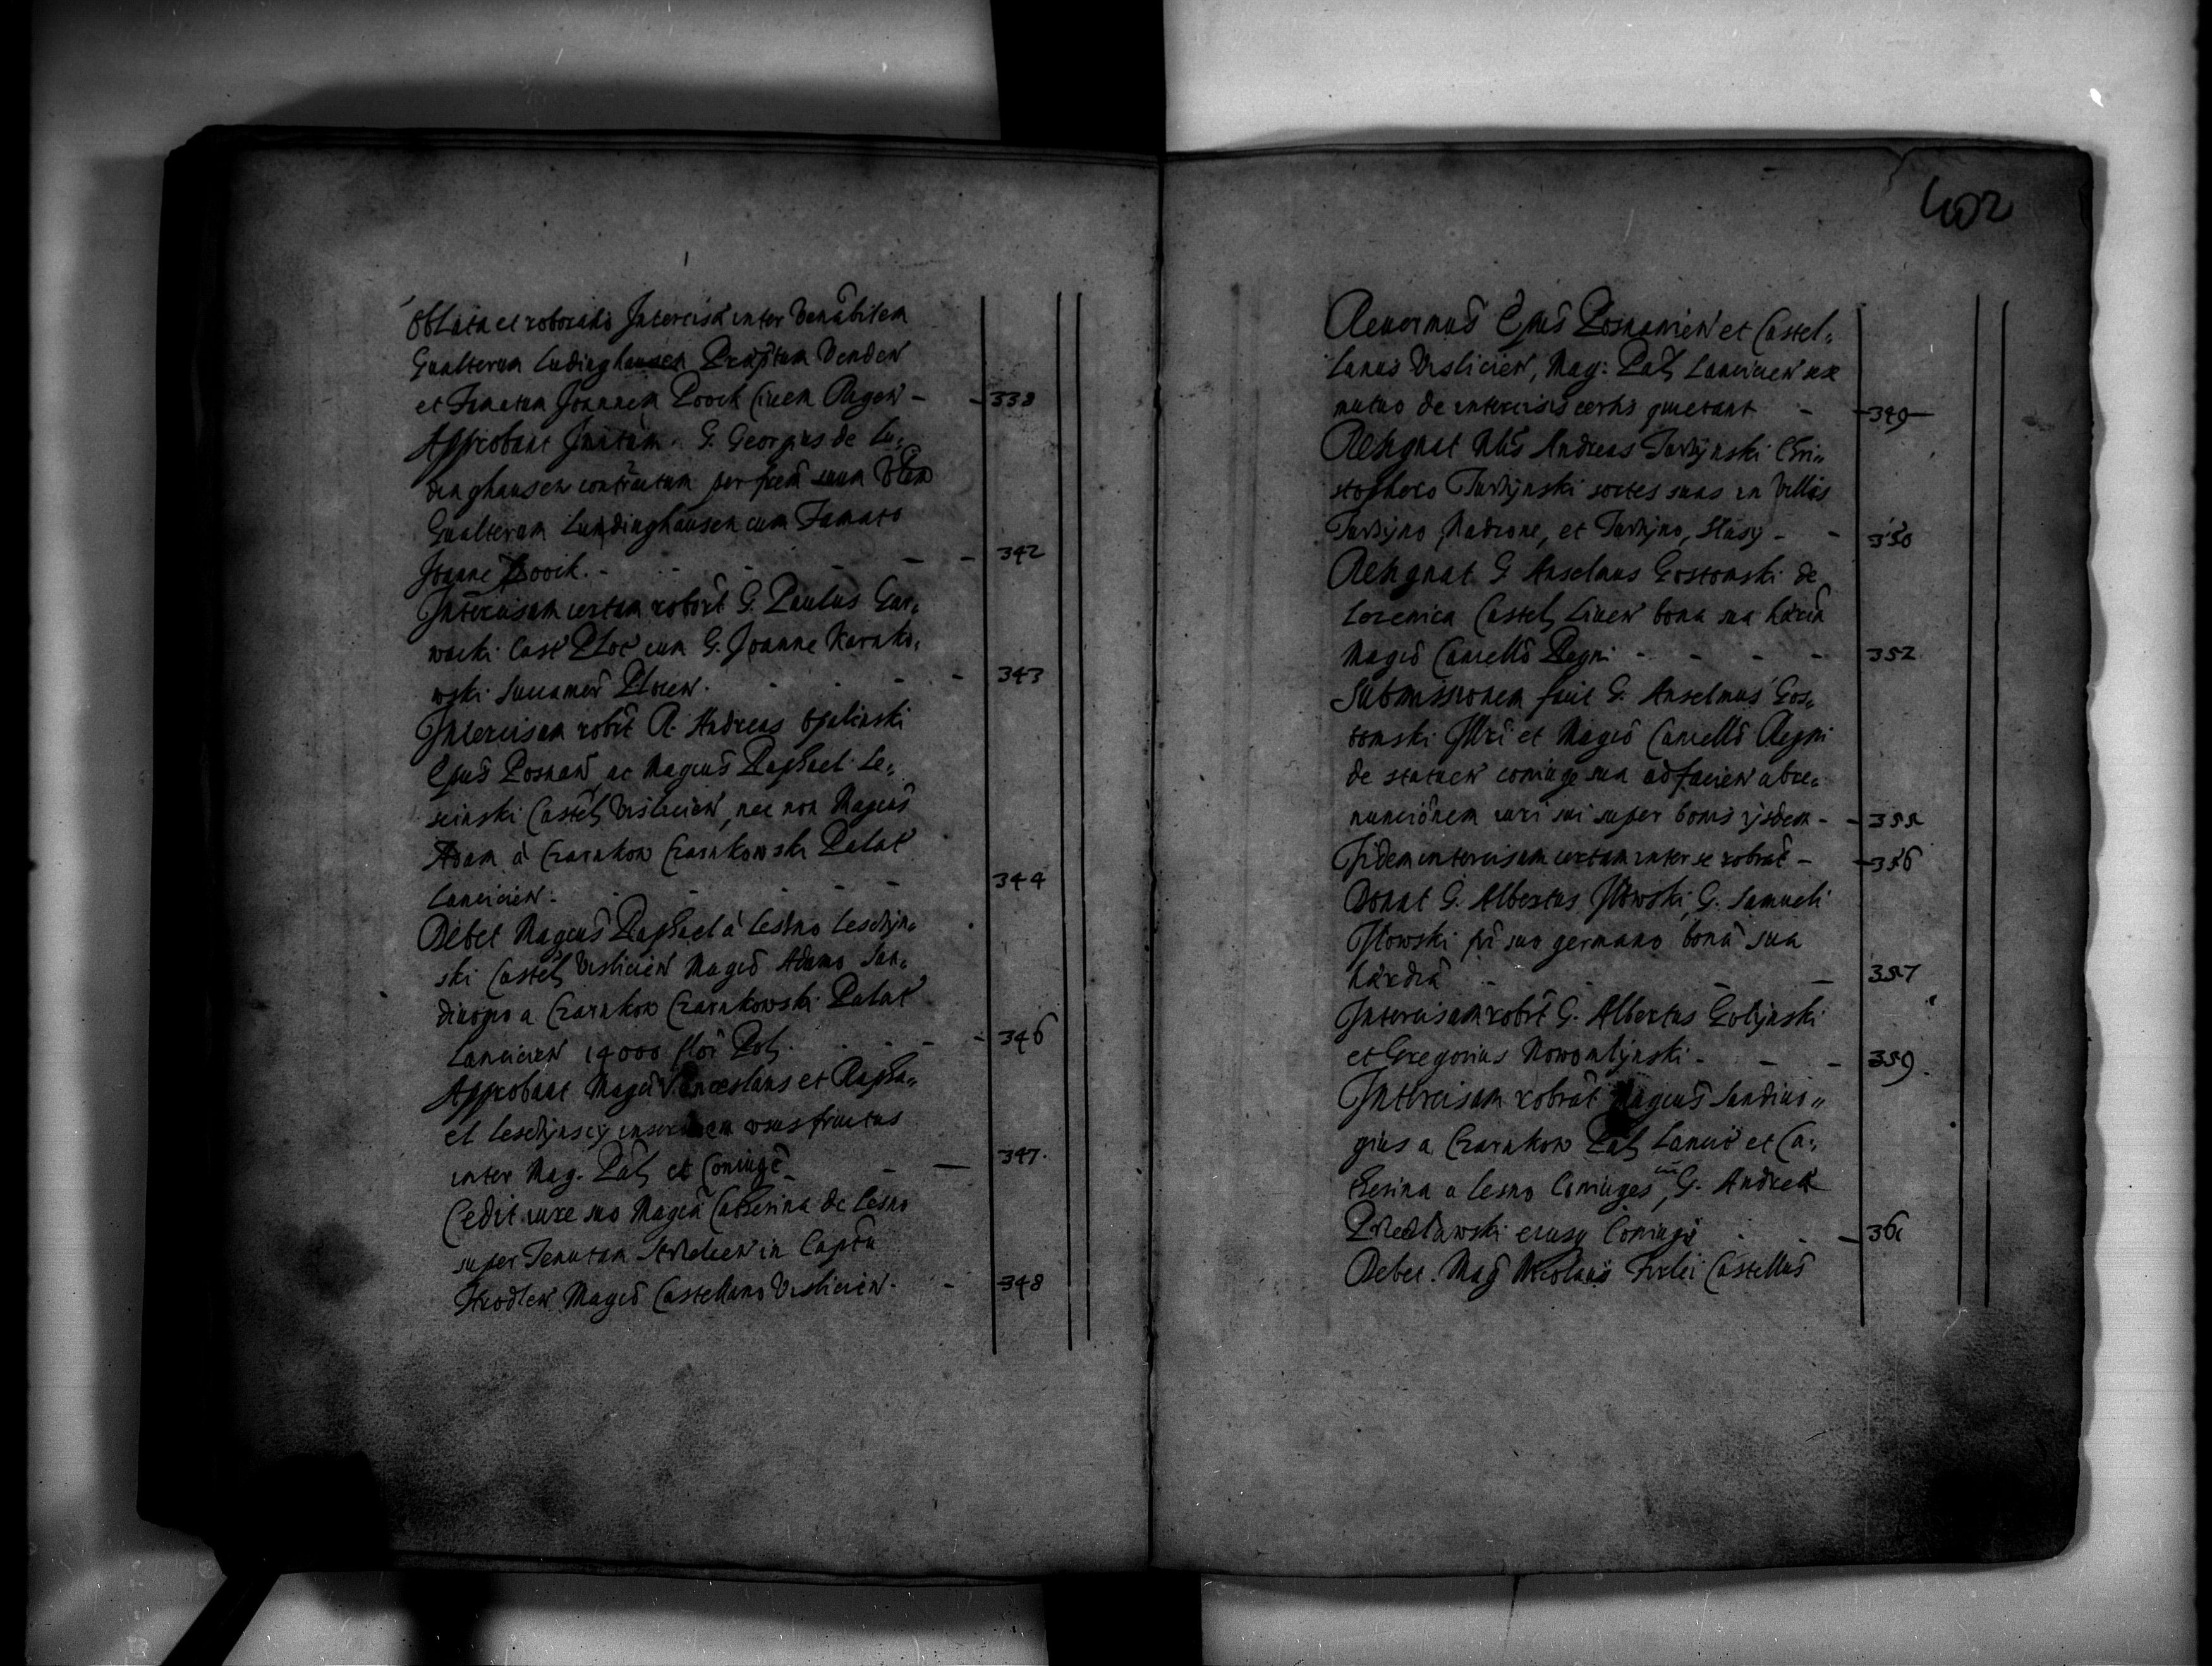 Oblata et roboratio Intercisa inter Venābilem
Gualterum Ludinghausen Præptum Venden
et Famatum Joannem Poock Civem Rigen - 338
Approbant Initam G. Georgius de Lu:
dinghausen contractum per frem suum Vblem
Gualterum Lundinghausen cum Famato
Joanne Poock. - 342
Intercisam certam robōrt G. Paulus Gar:
wacki Cast Ploc cum G. Joanne Karnko:
wski Succamer Plocen. 343
Intercisam robrt R. Andreas Opalinski
Epūs Posnan ac Magcūs Raphael Le:
scinski Castel Vislicien, nec non Magcūs
Adam a Czarnkow Czarnkowski Palat
Lancicien. 344
Debet Magcūs Raphael a Lesno Leschijn:
ski Castel Vislicien Magcō Adamo San:
divogio a Czarnkow Czarnkowski Palat
Lancicien 14000 flor Pol. 346
Approbant Magci Venceslaus et Rapha:
el Leschijnscij usus fructus
inter Mag. Pal et Coniugē 347.
Cedit iure suo Magcā Catherina de Lesno
super Tenutam in Captu
Magcō Castellano Vislicien. - 348
402
Reuermūs Epūs Posnanien et Castel:
lanus Vislicien, Mag. Pal Lancicien se
mutuo de intercisis certis quietant - 349
Resignat Nlis Andreas Turskijnski Chri:
stophoro Turskijnski sortes suas in Villis
350
Resignat G Anselmus Gostomski de
Lezenica Castel Liven bona sua hærēd
Magcō Cancellō Regni - 352
Submissionem facit G. Anselmus Gos:
tomski Illri et Magcō Cancellō Regni
de statuen coniuge sua ad facien abre:
nunciōnem iuri sui super bonis ijsdem - 355
Ijdem intercisam certam inter se robrāt - 356
Donat G. Albertus Ilowski, G. Samueli
Ilowski frī suo germano bona sua
hærdiā - 357
Intercisam robrt G. Albertus Golijnski
et Gregorius Nowomlijnski - 359.
Intercisam robrāt Magcūs Sandivo:
gius a Czarnkow Pal Lancic et Ca:
therina a Lesno Coniuges, cū G. Andrea
Przedzławski eiusq Coniugē 361
Debet Mag Nicolaūs Firlei Castellūs